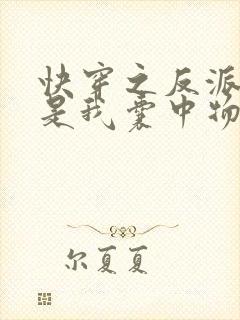 快穿之反派
是我囊中物
尔夏夏